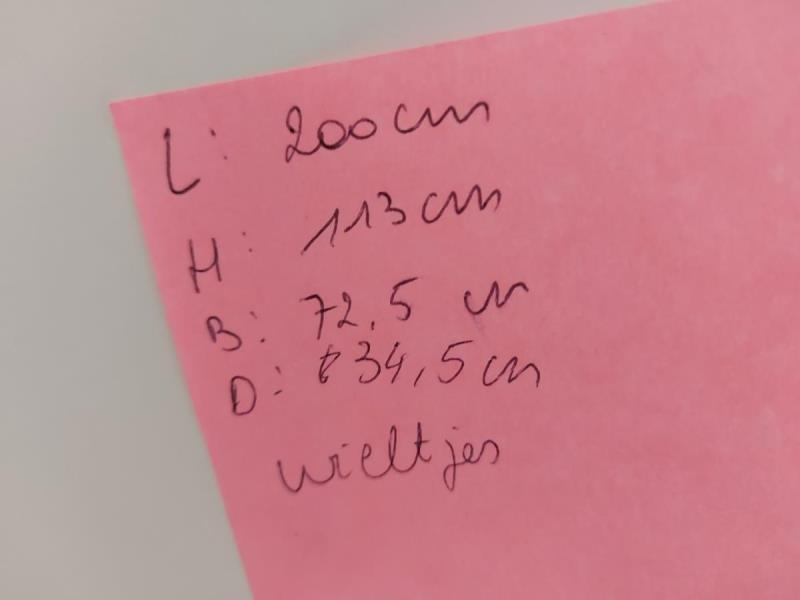 L: 200 cm
H: 113 cm
B: 72,5 cm
D: 34,5 cm
wieltjes